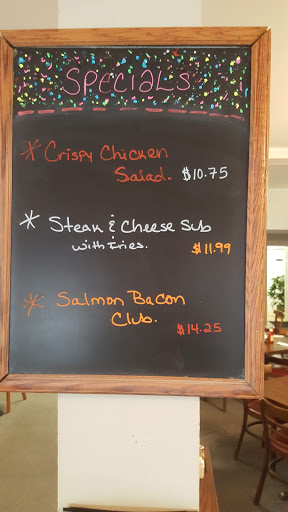 SPECIALS
* Crispy Chicken
Salad. $10.75
* Steak & Cheese Sub
with Fries. $11.99
* Salmon Bacon
Club.
$14.25